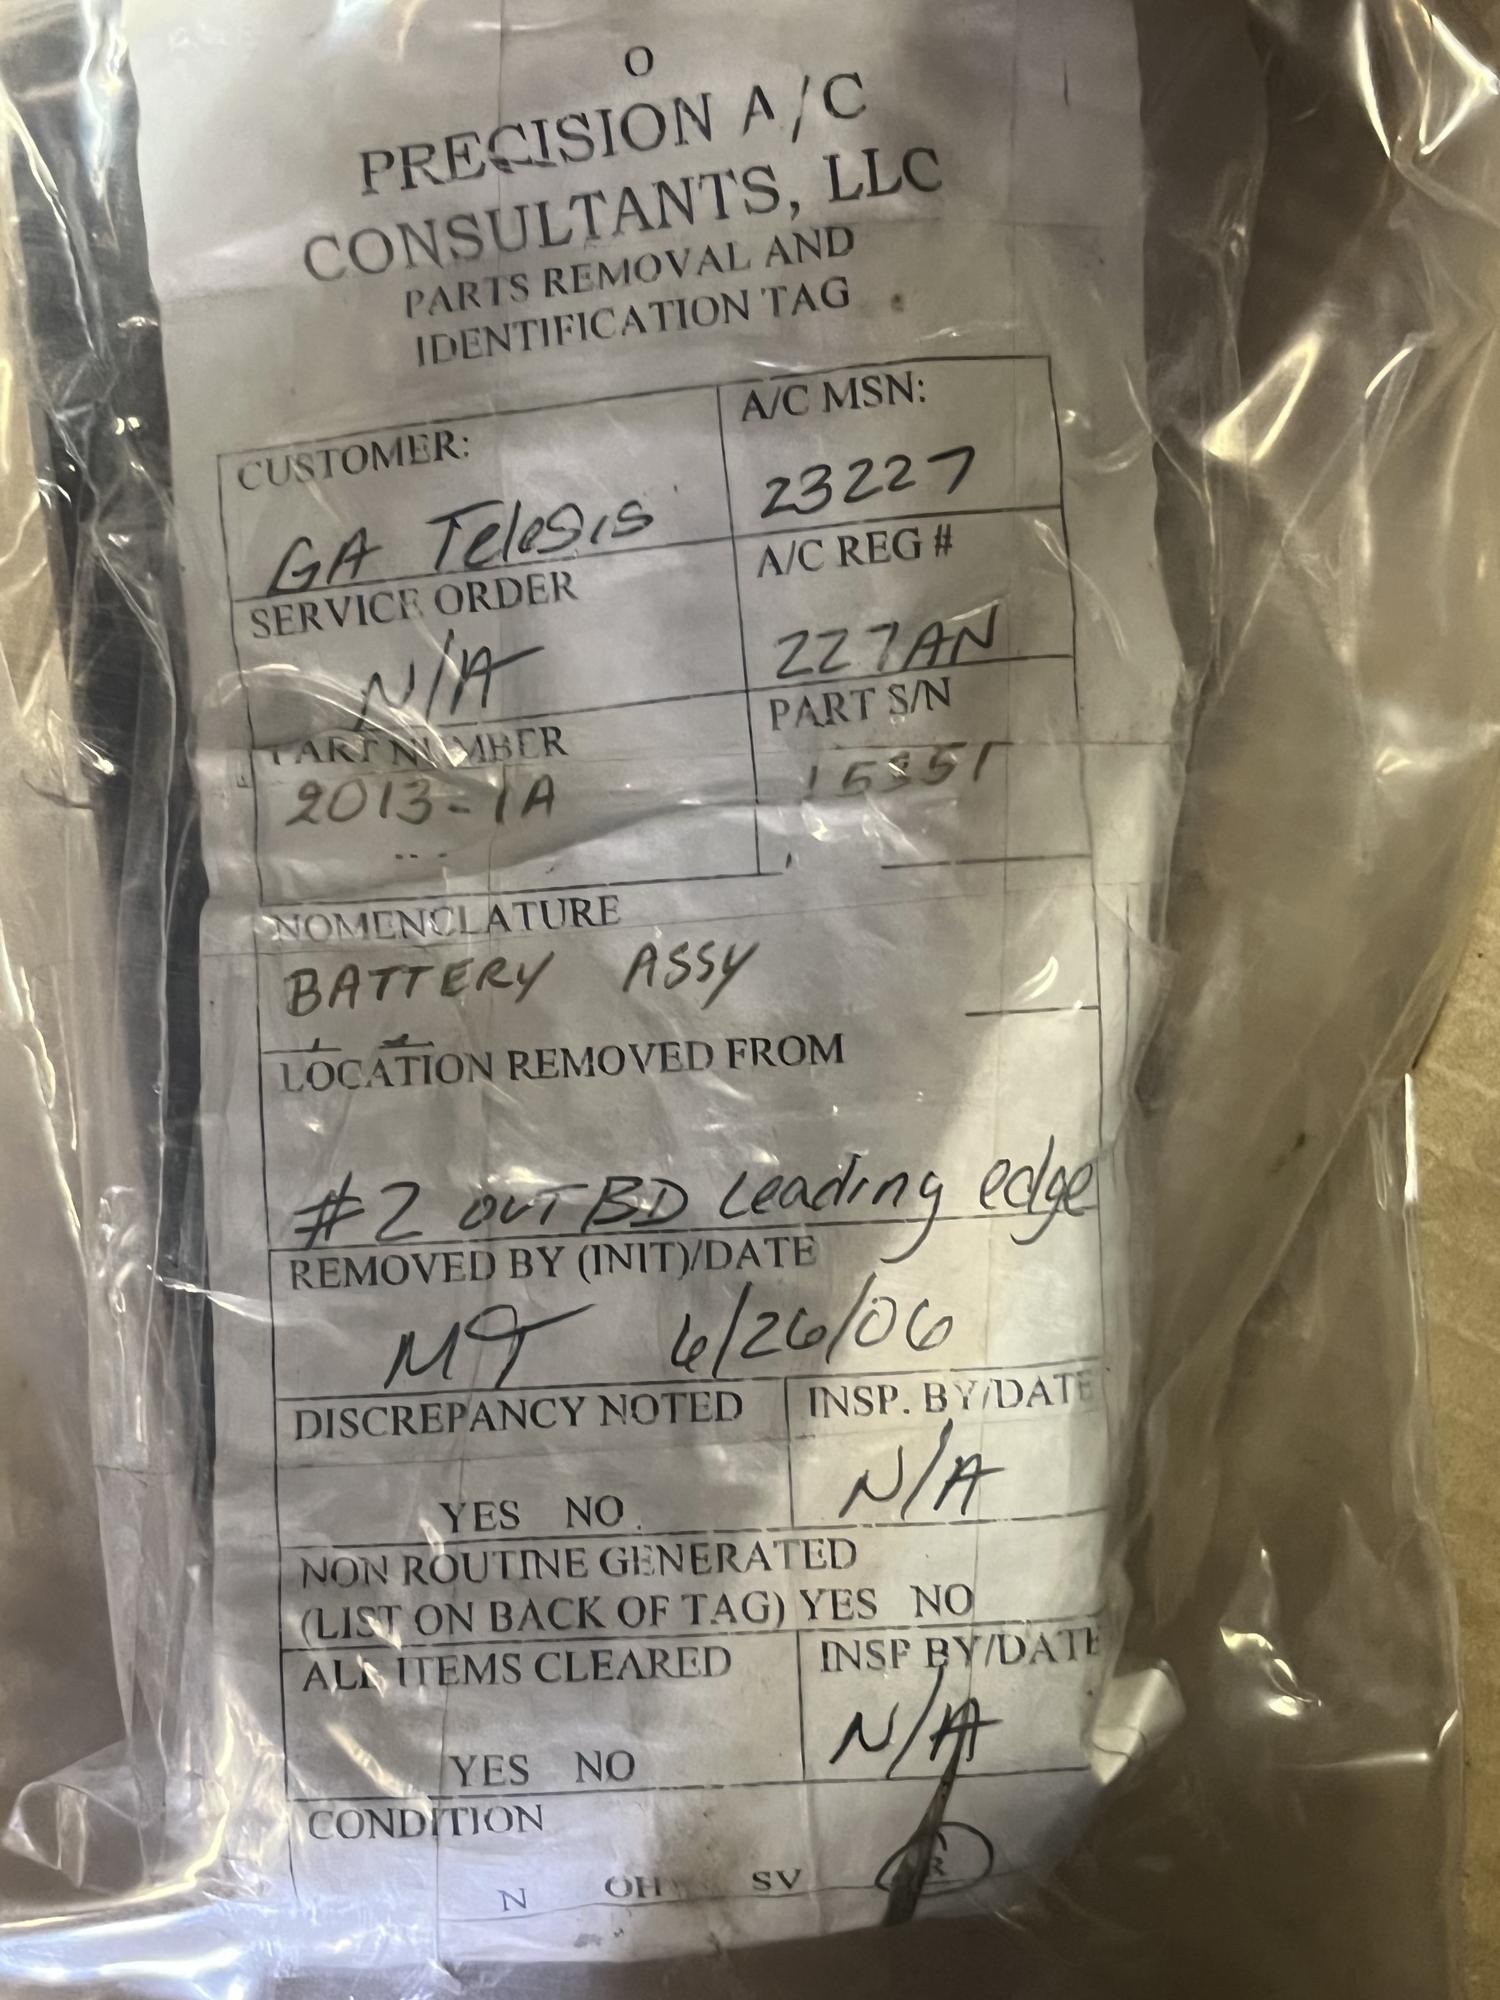 O
PRECISION A/C
CONSULTANTS, LLC
PARTS REMOVAL AND
IDENTIFICATION TAG
CUSTOMER:
GA Telesis
A/C MSN:
23227
SERVICE ORDER
N/A
A/C REG #
227AN
PART NUMBER
2013-1A
PART S/N
NOMENCLATURE
BATTERY ASSY
LOCATION REMOVED FROM
#2 OUTBD Leading edge
REMOVED BY (INIT)/DATE
MT 6/26/06
DISCREPANCY NOTED
YES NO
INSP. BY/DATE
N/A
NON ROUTINE GENERATED
(LIST ON BACK OF TAG) YES NO
ALL ITEMS CLEARED
YES NO
INSP BY/DATE
N/A
CONDITION
N OH SV